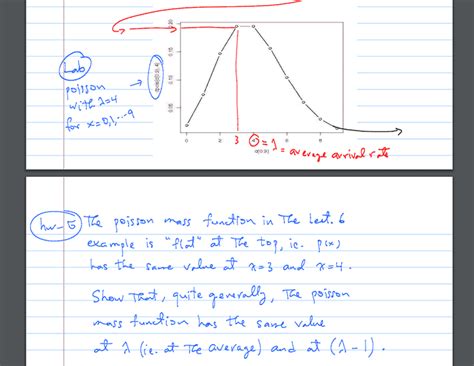 Lab
poisson
with λ=4
for x=0,1,...9
dpois(0:9, 4)
0.05 0.10 0.15 0.20
0 2 3 4 = λ = average arrival rate
6 8
c(0:9)
hw-5 The poisson mass function in The Lect. 6
example is "flat" at The top, ie. p(x)
has the same value at x=3 and x=4.
Show That, quite generally, The poisson
mass function has the same value
at λ (ie. at The average) and at (λ-1).